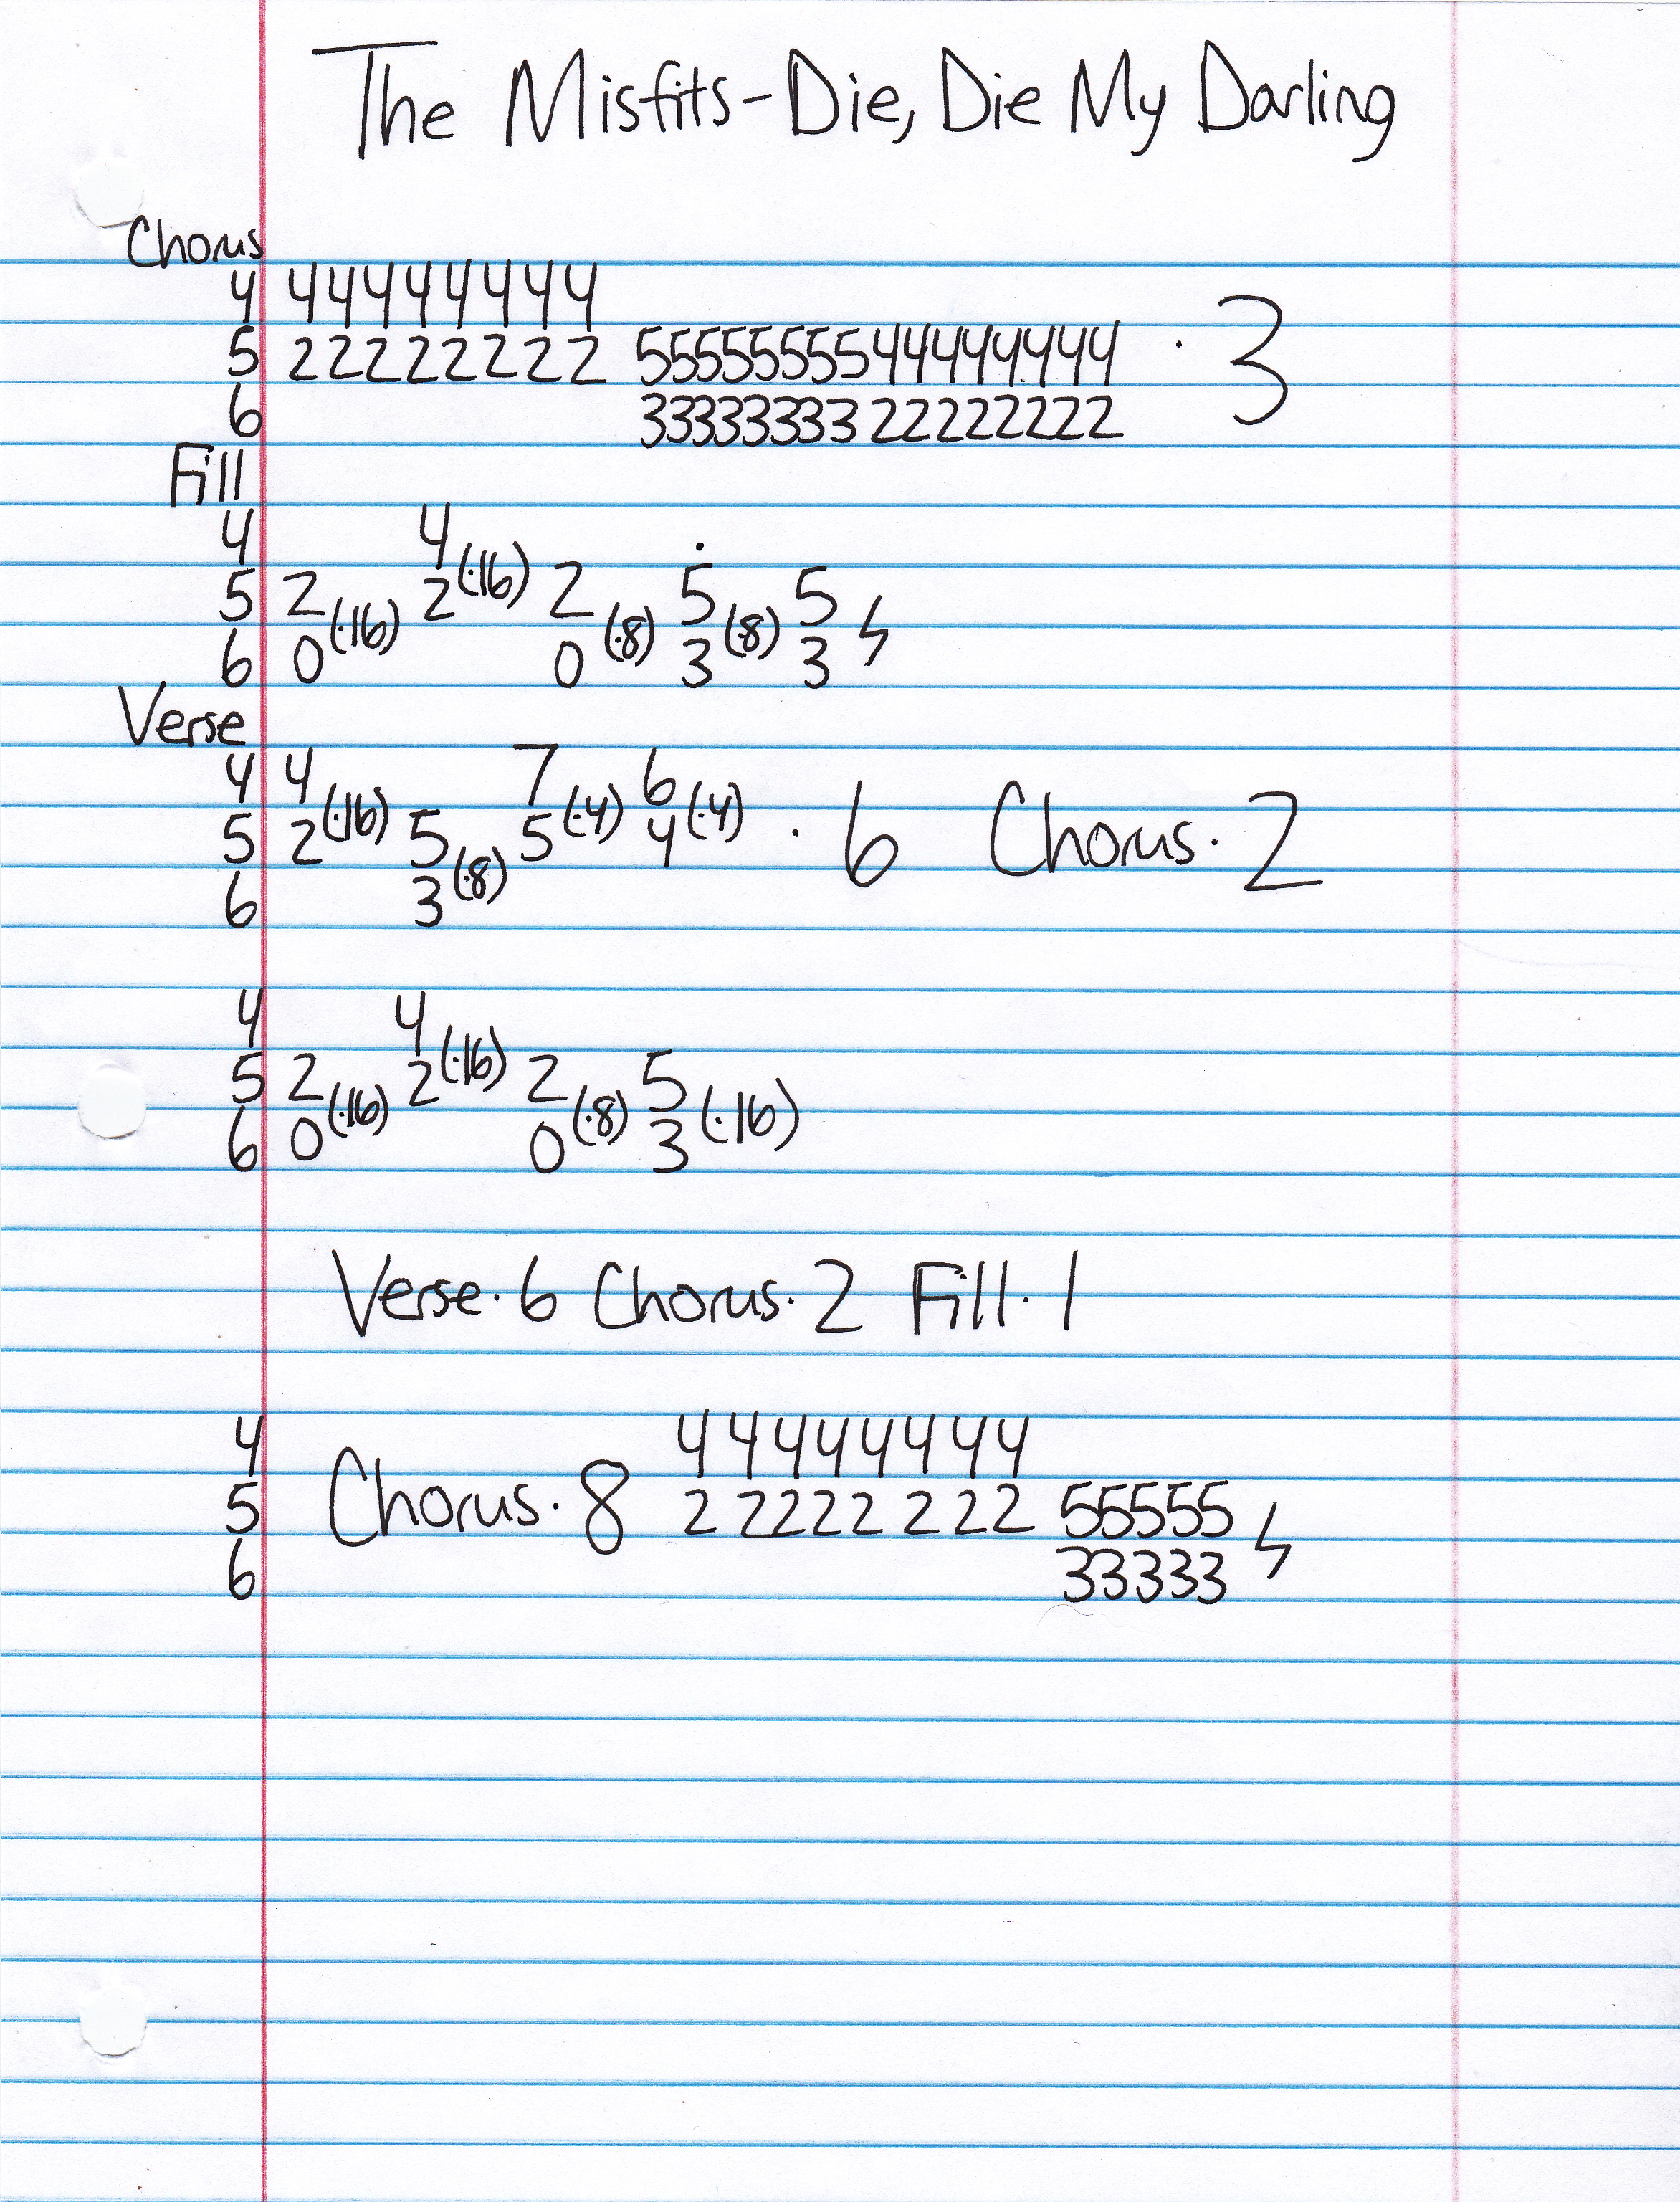 The Misfits-Die, Die My Darling
Chorus
4 44444444
5 22222222 5555555544444444 · 3
6 3333333322222222
Fill
4 4
5 2 (·16) 2 (·16) 2 5 5
6 0 0 (·8) 3 (·8) 3
Verse
4 4 7 6
5 2 (·16) 5 5 (·4) 4 (·4) · 6 Chorus · 2
6 3 (·8)
4 4
5 2 2 (·16) 2 5
6 0 (·16) 0 (·8) 3 (·16)
Verse · 6 Chorus · 2 Fill · 1
4 44444444
5 Chorus · 8 22222222 55555
6 33333